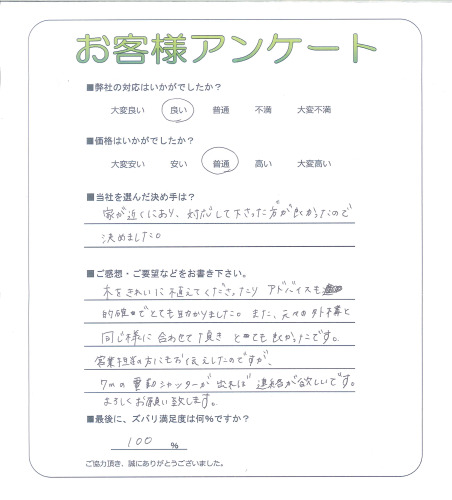 お客様アンケート
■弊社の対応はいかがでしたか？
大変良い 良い 普通 不満 大変不満
■価格はいかがでしたか？
大変安い 安い 普通 高い 大変高い
■当社を選んだ決め手は？
家が近くにあり、対応して下さった方が良かったので
決めました。
■ご感想・ご要望などをお書き下さい。
木をきれいに植えてくださったり アドバイスも
的確でとても助かりました。また、元々の外構と
同じ様に合わせて頂き とても良かったです。
営業担当の方にもお伝えしたのですが、
7mの電動シャッターが出れば 連絡が欲しいです。
よろしくお願い致します。
■最後に、ズバリ満足度は何％ですか？
100 %
ご協力頂き、誠にありがとうございました。